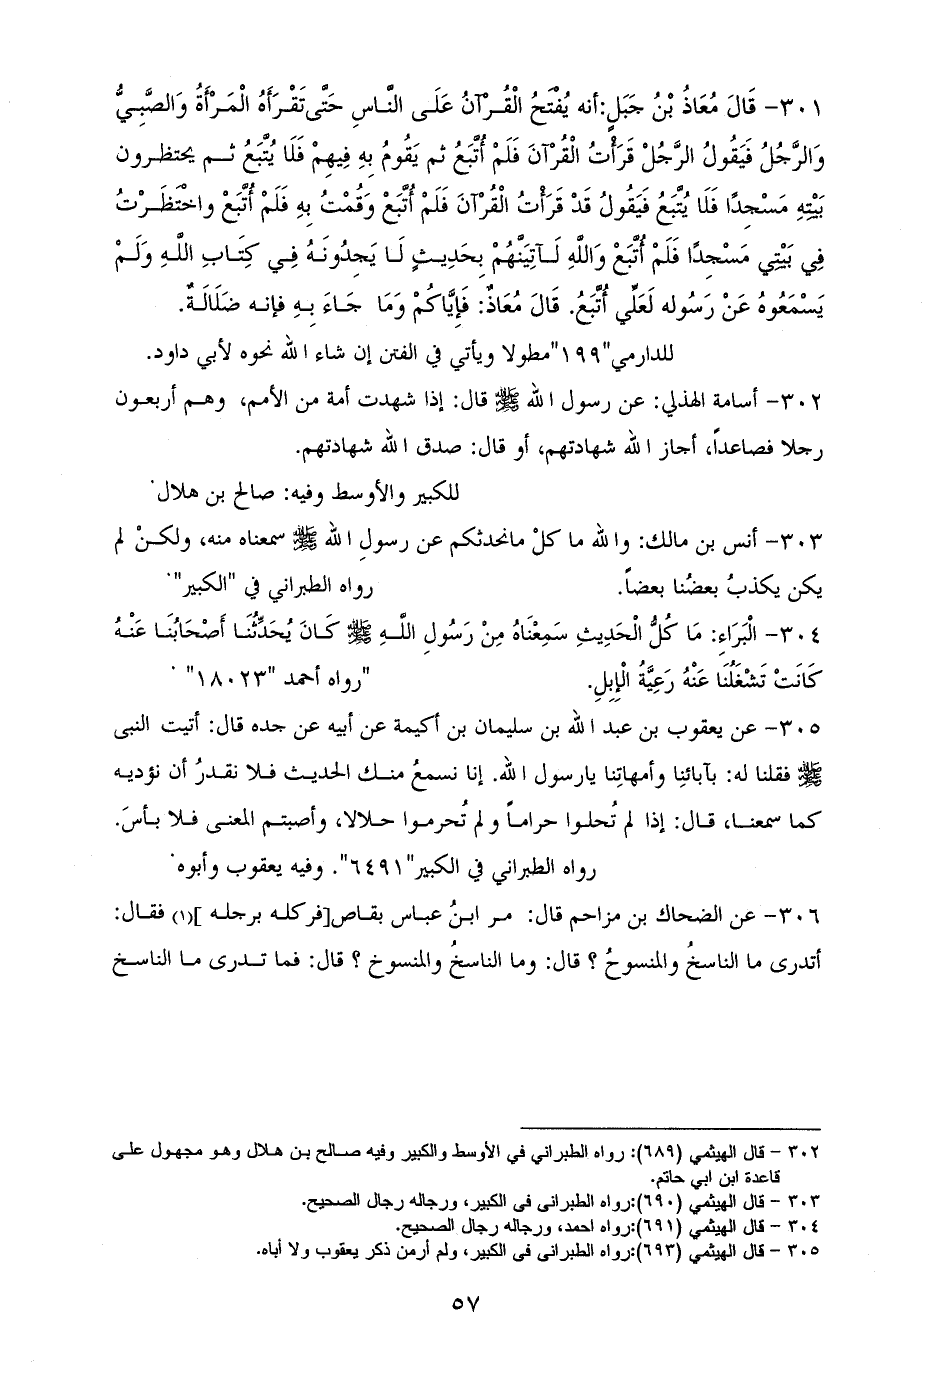 ٣٠١- قَالَ مُعَاذُ بْنُ جَبَلٍ:أنه يُفْتَحُ الْقُرْآنُ عَلَى النَّاسِ حَتَّى تَقْرَأَهُ الْمَرْأَةُ وَالصَّبِيُّ
وَالرَّجُلُ فَيَقُولُ الرَّجُلُ قَرَأْتُ الْقُرْآنَ فَلَمْ أُتَّبَعْ ثم يَقُومُ بِهِ فِيهِمْ فَلَا يُتَّبَعُ ثم يحتظرون
بَيْتِهِ مَسْجِدًا فَلَا يُتَّبَعُ فَيَقُولُ قَدْ قَرَأْتُ الْقُرْآنَ فَلَمْ أُتَّبَعْ وَقُمْتُ بِهِ فَلَمْ أُتَّبَعْ واحْتَظَرْتُ
فِي بَيْتِي مَسْجِدًا فَلَمْ أُتَّبَعْ وَاللَّهِ لَآتِيَنَّهُمْ بِحَدِيثٍ لَا يَجِدُونَهُ فِي كِتَابِ اللَّهِ وَلَمْ
يَسْمَعُوهُ عَنْ رَسُوله لَعَلِّي أُتَّبَعُ. قَالَ مُعَاذٌ: فَإِيَّاكُمْ وَمَا جَاءَ بِهِ فإنه ضَلَالَةٌ.
للدارمي"١٩٩"مطولا ويأتي في الفتن إن شاء الله نحوه لأبي داود.
٣٠٢- أسامة الهذلي: عن رسول الله ﷺ قال: إذا شهدت أمة من الأمم، وهم أربعون
رجلا فصاعداً، أجاز الله شهادتهم، أو قال: صدق الله شهادتهم.
للكبير والأوسط وفيه: صالح بن هلال.
٣٠٣- أنس بن مالك: والله ما كلْ مانحدثكم عن رسولِ الله ﷺ سمعناه منه، ولكنْ لم
يكن يكذبُ بعضُنا بعضاً. رواه الطبراني في "الكبير".
٣٠٤- الْبَرَاءِ: مَا كُلُّ الْحَدِيثِ سَمِعْنَاهُ مِنْ رَسُولِ اللَّهِ ﷺ كَانَ يُحَدِّثُنَا أَصْحَابُنَا عَنْهُ
كَانَتْ تَشْغَلُنَا عَنْهُ رَعِيَّةُ الْإِبِلِ. "رواه أحمد "١٨٠٢٣" .
٣٠٥- عن يعقوب بن عبد الله بن سليمان بن أكيمة عن أبيه عن جده قال: أتيت النبى
ﷺ فقلنا له: بآبائنِا وأمهاتِنا يارسول الله. إنا نسمعُ منك الحديث فلا نقدرُ أن نؤديه
كما سمعنا، قال: إذا لم تُحلوا حراماً ولم تُحرموا حلالا، وأصبتم المعنى فلا بأسَ.
رواه الطبراني في الكبير"٦٤٩١". وفيه يعقوب وأبوه.
٣٠٦- عن الضحاك بن مزاحم قال: مر ابنُ عباس بقاص[فركله برجله ](١) فقال:
أتدرى ما الناسخُ والمنسوخُ ؟ قال: وما الناسخُ والمنسوخ ؟ قال: فما تدرى ما الناسخ
٣٠٢ - قال الهيثمي (٦٨٩): رواه الطبراني في الأوسط والكبير وفيه صالح بن هلال وهو مجهول على
قاعدة ابن ابي حاتم.
٣٠٣ - قال الهيثمي (٦٩٠):رواه الطبرانى فى الكبير، ورجاله رجال الصحيح.
٣٠٤ - قال الهيثمي (٦٩١):رواه احمد، ورجاله رجال الصحيح.
٣٠٥ - قال الهيثمي (٦٩٣):رواه الطبرانى فى الكبير، ولم أرمن ذكر يعقوب ولا أباه.
٥٧